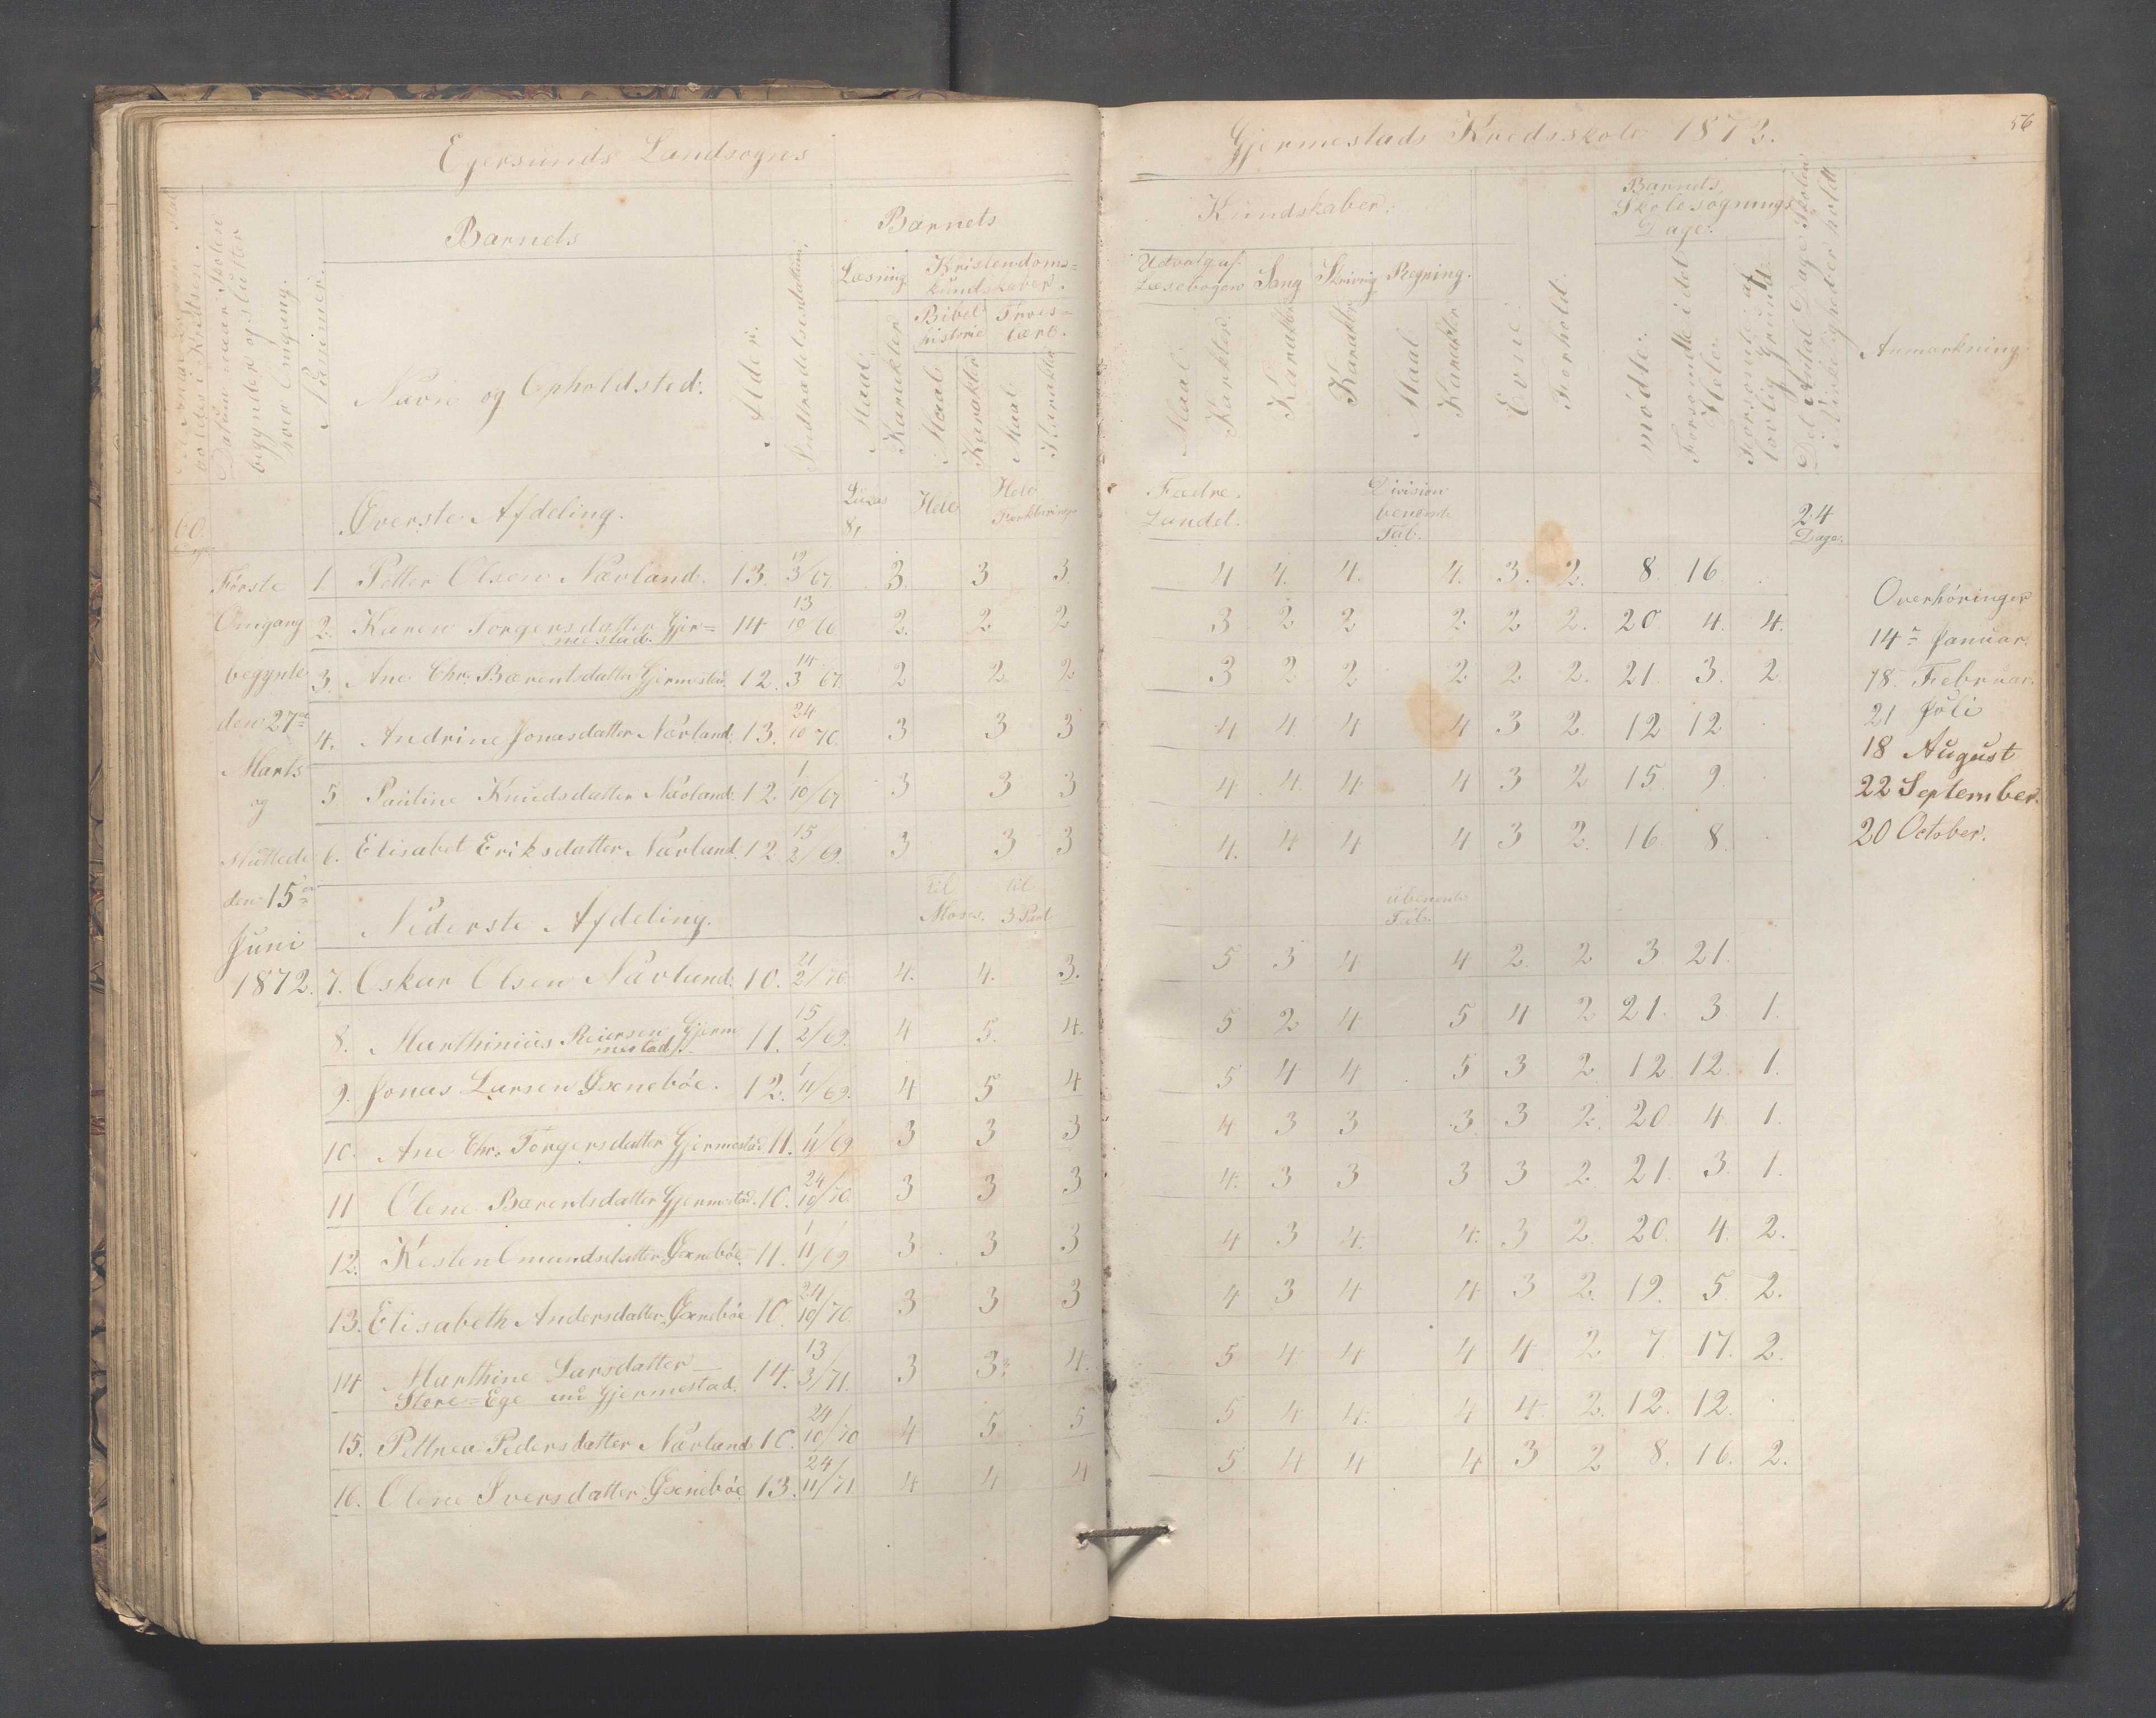 Egersunds Landsogns
Gjermestads Kredsskole 1872.
56
holdes i Kredsen.
Datum naar Skolen
begynder og slutter
hver Omgang.
Nummer.
Barnets
Navn og Opholdsted.
Alder.
Indtrædelsesdatum.
Barnets
Læsning
Maal.
Karakter
Kristendoms=
kundskaber.
Bibel
historie
Maal
Karakter
Troes=
lære.
Maal
Karakter
Kundskaber.
Udvalg af
Læsebogen
Maal
Karakter.
Sang
Karakter
Skrivning
Karakter
Regning.
Maal
Karakter
Evne.
Forhold.
Barnets
Skolesøgnings
Dage.
mødte.
Forsømte i det
Hele.
Forsømte af
lovlig Grund.
Det Antal Dage Skolen
i Virkeligheden holdt
Anmærkning
60
Øverste Afdeling.
Lucas
8,
Hele
Hele
Forklaringen
Fædre.
Landet.
Division
benævnte
Tab.
24
Dage.
Første
Omgang
begynte
den 27de
Marts
og
sluttede
den 15de
Juni
1872.
1. Petter Olsen Nævland. 13. 19 3/67. 3. 3 3. 4 4. 4. 4. 3. 2. 8. 16
2. Karen Torgersdatter Gjer=
mestad. 14 13 10 66 2. 2 2 3 2 2 2 2 2. 20 4. 4.
3. Ane Chr. Bærentsdatter Gjermestad. 12. 14 3 67. 2 2 2 3 2 2 2 2 2. 21. 3. 2
4. Andrine Jonasdatter Nævland. 13. 24 10 70. 3 3 3 4 4. 4 4 3 2. 12 12
5 Pauline Knudsdatter Nævland. 12. 1 10/67 3 3 3 4 4. 4 4 3 2 15. 9.
6. Elisabet Eriksdatter Nævland. 12 15 2/69. 3 3 3 4. 4 4 4 3 2. 16 8.
Nederste Afdeling.
til
Moses.
til
3 Part
ubenævnte
Tab.
7. Oskar Olsen Nævland. 10. 21 2/70 4. 4. 3. 5 3 4 4 2. 2 3 21.
8. Marthinius Reiersen Gjerm
mestad. 11. 15 2/69. 4 5. 4. 5 2 4 5 4 2 21. 3. 1.
9. Jonas Larsen Øxnebøe. 12. 1 11/69. 4 5 4 5 4 4 5 3 2 12 12. 1.
10. Ane Chr. Torgersdatter Gjermestad 11. 1 11/69 3 3 3 4 3 3 3 3 2. 20 4. 1.
11 Olene Bærentsdatter Gjermestad. 10. 24 10/70 3 3 3 4. 3 3 3 3 2 21. 3. 1.
12. Kesten Omundsdatter Øxnebøe. 11. 1 11/69 3 3 3 4 3 4. 4. 3 2. 20. 4. 2.
13. Elisabeth Andersdatter Øxnebøe 10. 24 10/70 3 3 3 4 3 4 4 3 2. 19. 5. 2.
14 Marthine Larsdatter
Store=Ege nu Gjermestad. 14. 13 3/71. 3 3. 4. 5 4 4 4 4 2 7. 17. 2.
15. Pettrea Pedersdatter Nævland 10. 24 10/70 4 5 5 5 4 4. 4 4. 2. 12. 12.
16. Olene Iversdatter Øxnebøe. 13. 24 11/71 4 4 4 5 4 4 4 3 2 8. 16. 2.
Overhøringer
14de Januar.
18. Februar.
21 Juli
18 August
22 September.
20 October.